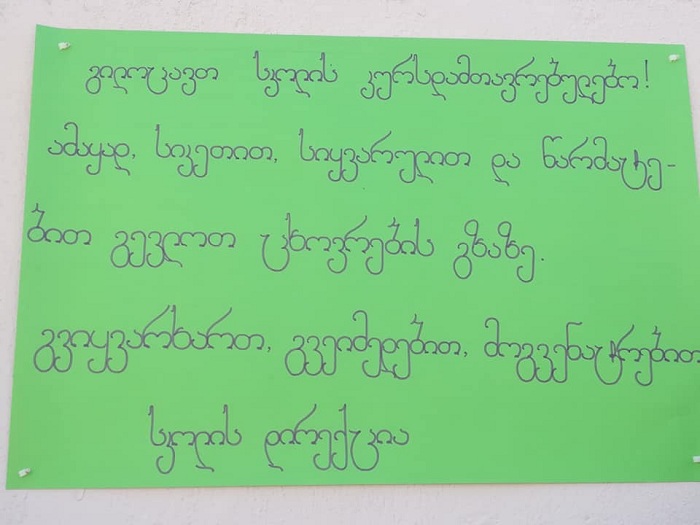 გილოცავთ სკოლის კურსდამთავრებულებო!
ამაყად, სიკეთით, სიყვარულით და წარმატე-
ბით გევლოთ ცხოვრების გზაზე.
გვიყვარხართ, გვეიმედებით, მოგვენატრებით
სკოლის დირექცია